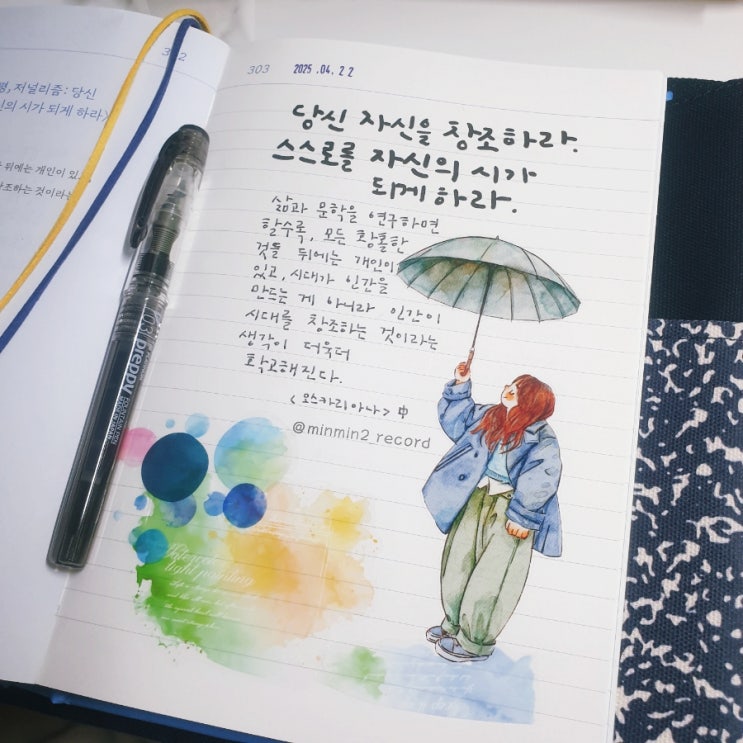 302
평, 저널리즘: 당신
의 시가 되게 하라>
뒤에는 개인이 있
조하는 것이라는
303
2025.04.22
당신 자신을 창조하라.
스스로를 자신의 시가
되게 하라.
삶과 문학을 연구하면
할수록, 모든 황홀한
것들 뒤에는 개인이
있고, 시대가 인간을
만드는 게 아니라 인간이
시대를 창조하는 것이라는
생각이 더욱더
확고해진다.
<오스카리아나> 中
@minmin2_record
03 preppy
FOUNTAIN PEN
light painting